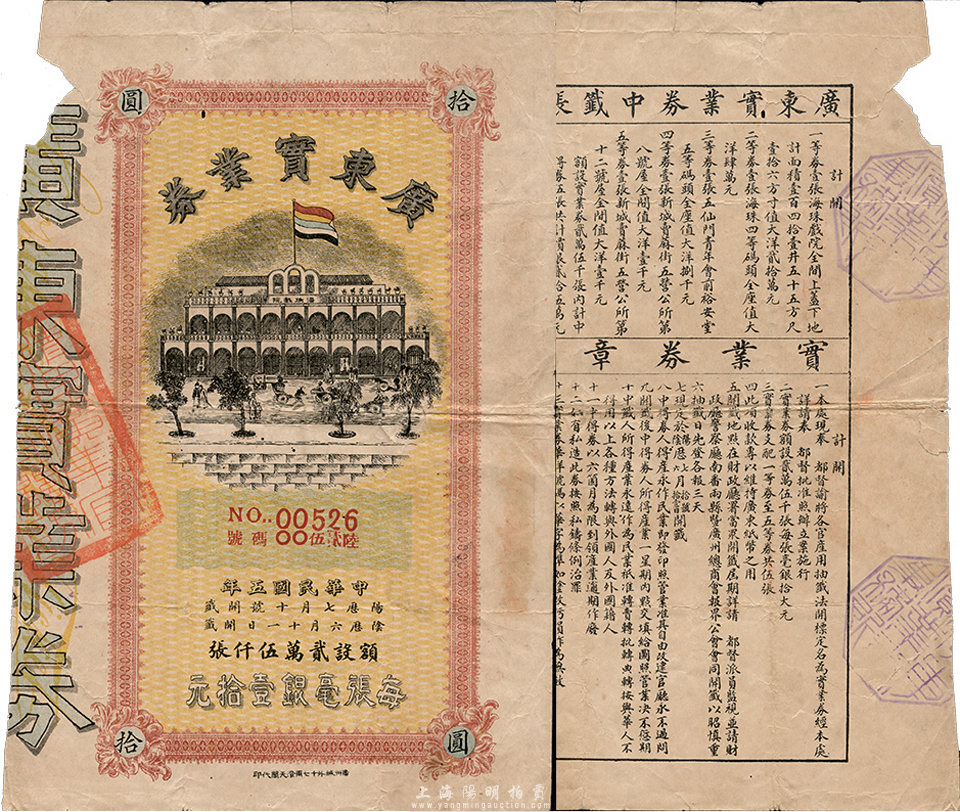 圓 拾
廣東實業券
NO.. 00526
號碼 00伍佰貳陸
中華民國五年
陽歷七月十號開籤
陰歷六月十一日開籤
額設貳萬伍仟張
每張毫銀壹拾元
拾 圓
廣東實業券
廣東實業券中籤張
計開
一等券壹張海珠戲院全間上蓋下地
計面積壹百四拾壹井五十五方尺
壹拾六方寸值大洋貳拾萬元
二等券壹張海珠四等碼頭全座值大
洋肆萬元
三等券壹張五仙門青年會前裕安堂
五等碼頭全座值大洋捌千元
四等券壹張新城賣麻街五營公所第
八號屋全間值大洋壹千元
五等券壹張新城賣麻街五營公所第
十二號屋全間值大洋壹千元
額設實業券貳萬伍千張內計中
實業券章
計開
一本處現奉 都督諭將各官產用抽籤法開標定名為實業券經本處
詳請奉 都督批准照辦立案施行
二實業券額設貳萬伍千張每張毫銀拾大元
三實業券支配一等券至五等券共伍張
四此項收款專以維持廣東紙幣之用
五開籤地點在財政廳署當眾開籤屆期詳請 都督派員監視並請財
政廳警察廳南番兩縣暨廣州總商會報界公會會同開籤以昭慎重
六抽籤日先登各報三天
七現定於陽歷七月拾號陰歷六月十一日開籤
八中得券人得產永作民業即發印照管業准其自由改建官廳永不過問
九開籤後中得券人所得產業一星期內點交填給圖照管業決不愆期
十中籤人所得產業永遠作為民業祇准轉賣轉批轉典轉按與華人不
得用以上各種方法轉與外國人及外國籍人
十一中得券以六個月為限到領產業過期作廢
十二如有私造此券按照私鑄條例治罪
上海陽明拍賣
www.yangmingauction.com